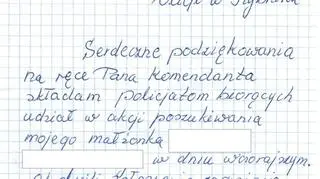 w
Serdeczne podziękowania
na ręce Pana Komendanta
składam policjantom biorących
udział w akcji poszukiwania
mojego małżonka
w dniu wczorajszym.